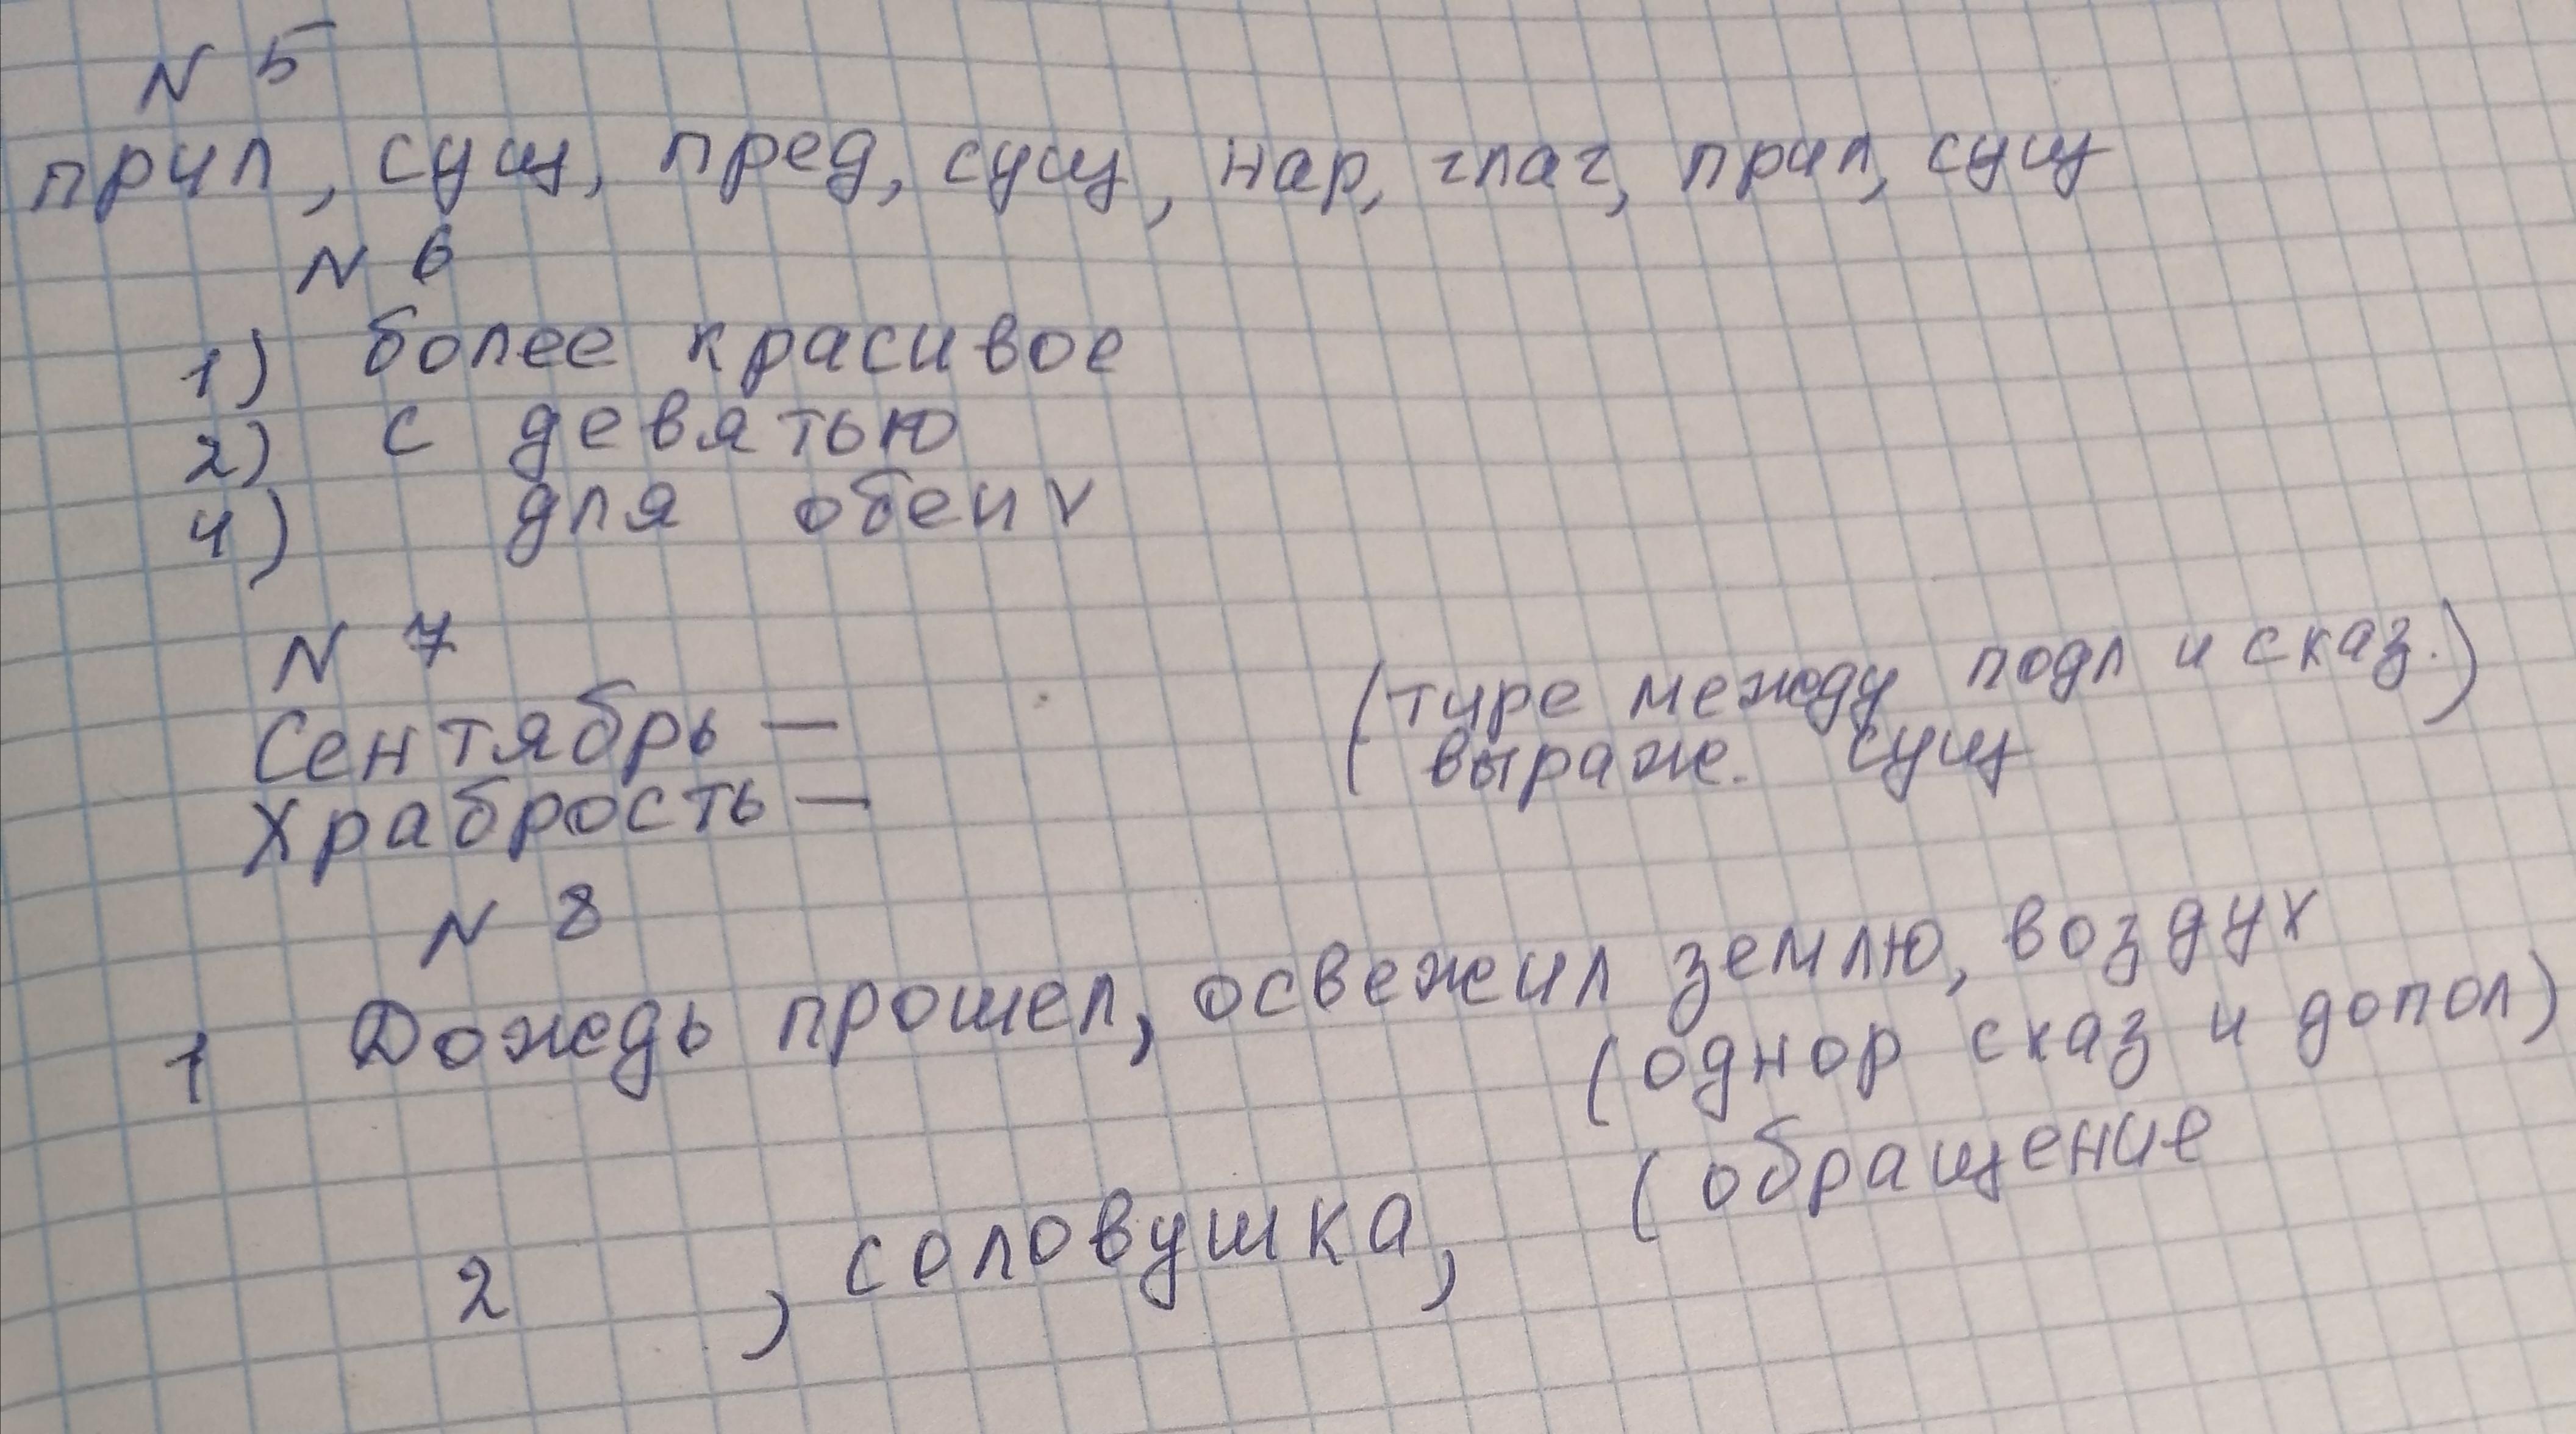 N 5
прил, сущ, пред, сущ, нар, глаг, прил, сущ
N 6
1) более красивое
2) с девятью
4) для обеих
N 7
Сентябрь — (тире между подл и сказ.)
Храбрость — выраж. сущ
N 8
1 Дождь прошел, освежил землю, воздух
(однор сказ и допол)
2 , соловушка, (обращение